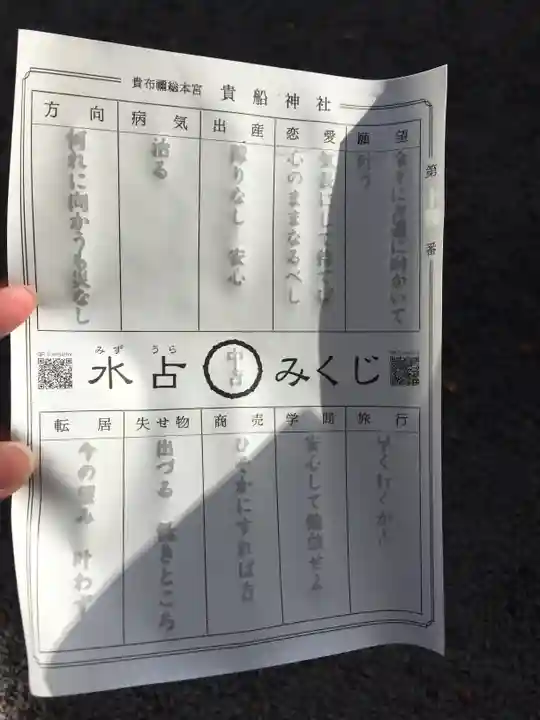 貴布禰総本宮 貴船神社
第
番
願望
叶う
恋愛
心のままなるべし
出産
障りなし 安心
病気
治る
方向
何れに向かうも災なし
みず うら
水占 みくじ
中吉
旅行
早く行くが吉
学問
安心して勉強せよ
商売
ひそかにすれば吉
失せ物
出づる 低きところ
転居
今の望み 叶わず